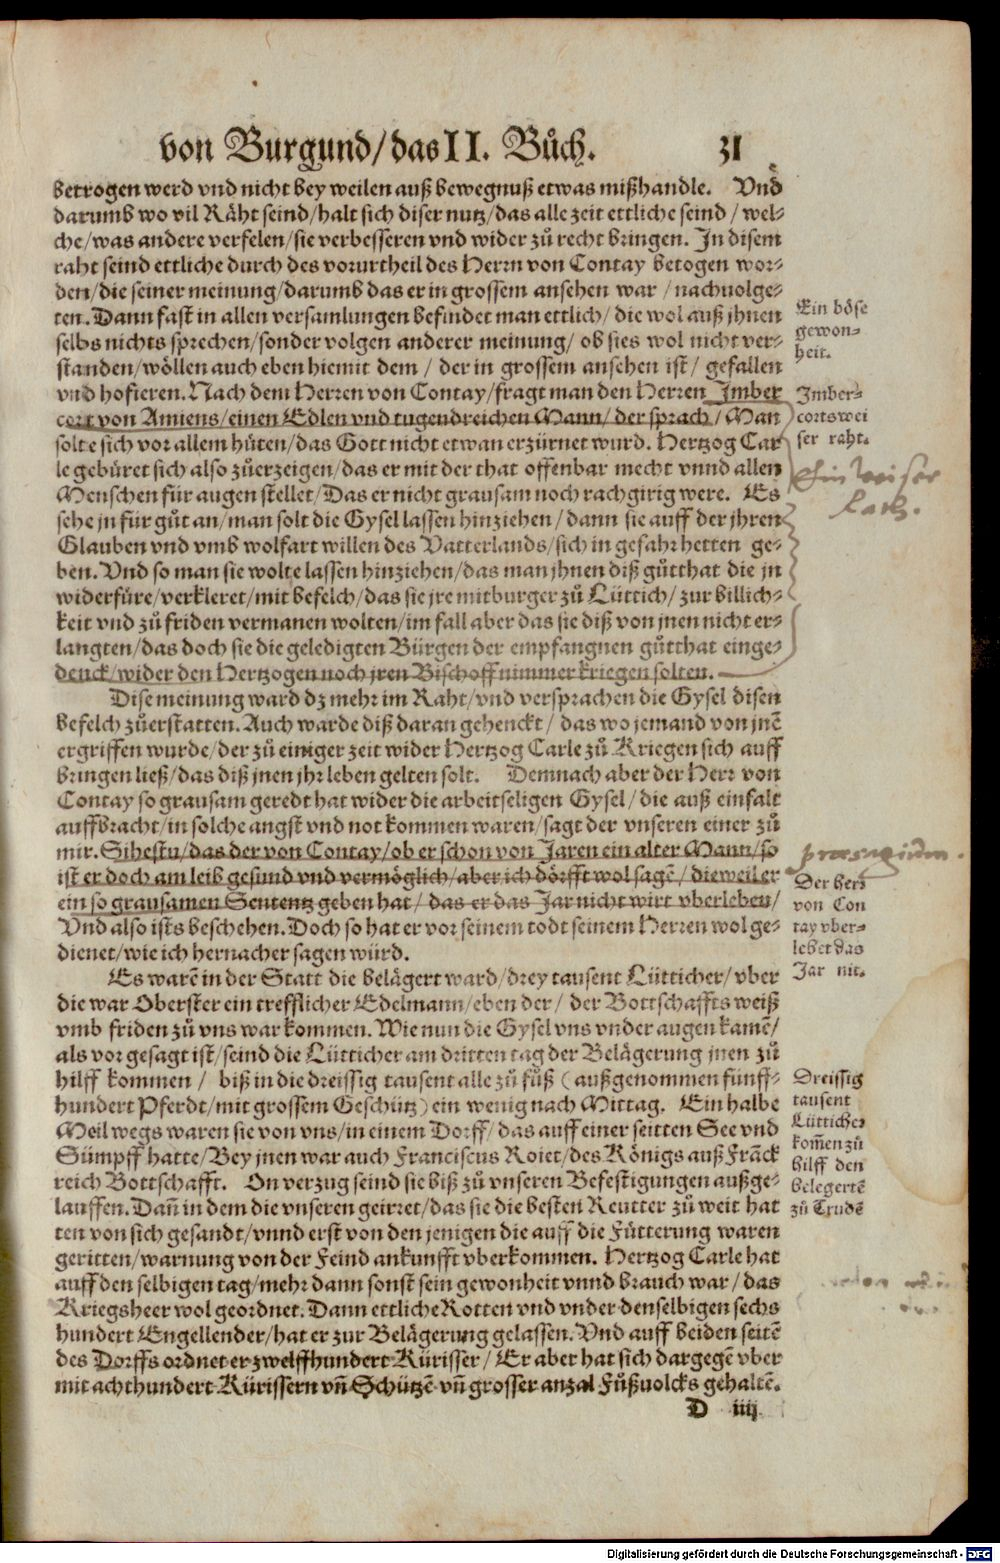 von Burgund/das II. Bůch. 31
betrogen werd vnd nicht bey weilen auß bewegnuß etwas mißhandle. Vnd
darumb wo vil Räht seind/halt sich diser nutz/das alle zeit ettliche seind/wel-
che/was andere verfelen/sie verbesseren vnd wider zů recht bringen. In disem
raht seind ettliche durch des vorurtheil des Herrn von Contay betogen wor-
den/die seiner meinung/darumb das er in grossem ansehen war/nachuolge-
ten. Dann fast in allen versamlungen befindet man ettlich/die wol auß jhnen
selbs nichts sprechen/sonder volgen anderer meinung/ob sies wol nicht ver-
standen/wöllen auch eben hiemit dem/der in grossem ansehen ist/gefallen
vnd hofieren. Nach dem Herren von Contay/fragt man den Herren Imber
cort von Amiens/einen Edlen vnd tugendreichen Mann/der sprach/Man
solte sich vor allem hüten/das Gott nicht etwan erzürnet wurd. Hertzog Car
le gebüret sich also zůerzeigen/das er mit der that offenbar mecht vnnd allen
Menschen für augen stellet/Das er nicht grausam noch rachgirig were. Es
sehe jn für gůt an/man solt die Gysel lassen hinziehen/dann sie auff der jhren
Glauben vnd vmb wolfart willen des Vatterlands/sich in gefahr hetten ge-
ben. Vnd so man sie wolte lassen hinziehen/das man jhnen diß gůtthat die jn
widerfůre/verkleret/mit befelch/das sie jre mitburger zů Lüttich/zur billich-
keit vnd zů friden vermanen wolten/im fall aber das sie diß von jnen nicht er-
langten/das doch sie die geledigten Bürgen der empfangnen gůtthat einge-
denck/wider den Hertzogen noch jren Bischoff nimmer kriegen solten.
Dise meinung ward dz mehr im Raht/vnd versprachen die Gysel disen
befelch zůerstatten. Auch warde diß daran gehenckt/das wo jemand von jnē
ergriffen wurde/der zů einiger zeit wider Hertzog Carle zů Kriegen sich auff
bringen ließ/das diß jnen jhr leben gelten solt. Demnach aber der Herr von
Contay so grausam geredt hat wider die arbeitseligen Gysel/die auß einfalt
auffbracht/in solche angst vnd not kommen waren/sagt der vnseren einer zů
mir. Sihestu/das der von Contay/ob er schon von Jaren ein alter Mann/so
ist er doch am leib gesund vnd vermöglich/aber ich dörfft wol sagē/dieweil er
ein so grausamen Sententz geben hat/das er das Jar nicht wirt vberleben/
Vnd also ists beschehen. Doch so hat er vor seinem todt seinem Herren wol ge-
dienet/wie ich hernacher sagen würd.
Es warē in der Statt die belägert ward/drey tausent Lütticher/vber
die war Oberster ein trefflicher Edelmann/eben der/der Bottschaffts weiß
vmb friden zů vns war kommen. Wie nun die Gysel vns vnder augen kamē/
als vor gesagt ist/seind die Lütticher am dritten tag der Belägerung jnen zů
hilff kommen/biß in die dreissig tausent alle zů fůß (außgenommen fünff-
hundert Pferdt/mit grossem Geschütz) ein wenig nach Mittag. Ein halbe
Meil wegs waren sie von vns/in einem Dorff/das auff einer seitten See vnd
Sümpff hatte/Bey jnen war auch Franciscus Roiet/des Königs auß Frāck
reich Bottschafft. On verzug seind sie biß zů vnseren Befestigungen außge-
lauffen. Dañ in dem die vnseren geirret/das sie die besten Reutter zů weit hat
ten von sich gesandt/vnnd erst von den jenigen die auff die Fütterung waren
geritten/warnung von der Feind ankunfft vberkommen. Hertzog Carle hat
auff den selbigen tag/mehr dann sonst sein gewonheit vnnd brauch war/das
Kriegsheer wol geordnet. Dann ettliche Rotten vnd vnder denselbigen sechs
hundert Engellender/hat er zur Belägerung gelassen. Vnd auff beiden seitē
des Dorffs ordnet er zwelffhundert Kürisser/Er aber hat sich dargegē vber
mit achthundert Kürissern vñ Schützē vñ grosser anzal Fůßuolcks gehaltē.
D iiij
Ein böse
gewon-
heit.
Imber-
corts wei
ser raht.
Ein weiser
Rath.
præsagium.
Der herr
von Con
tay vber-
lebet das
Jar nit.
Dreissig
tausent
Lütticher
kom̃en zů
hilff den
belegertē
zů Trudē
Digitalisierung gefördert durch die Deutsche Forschungsgemeinschaft - DFG